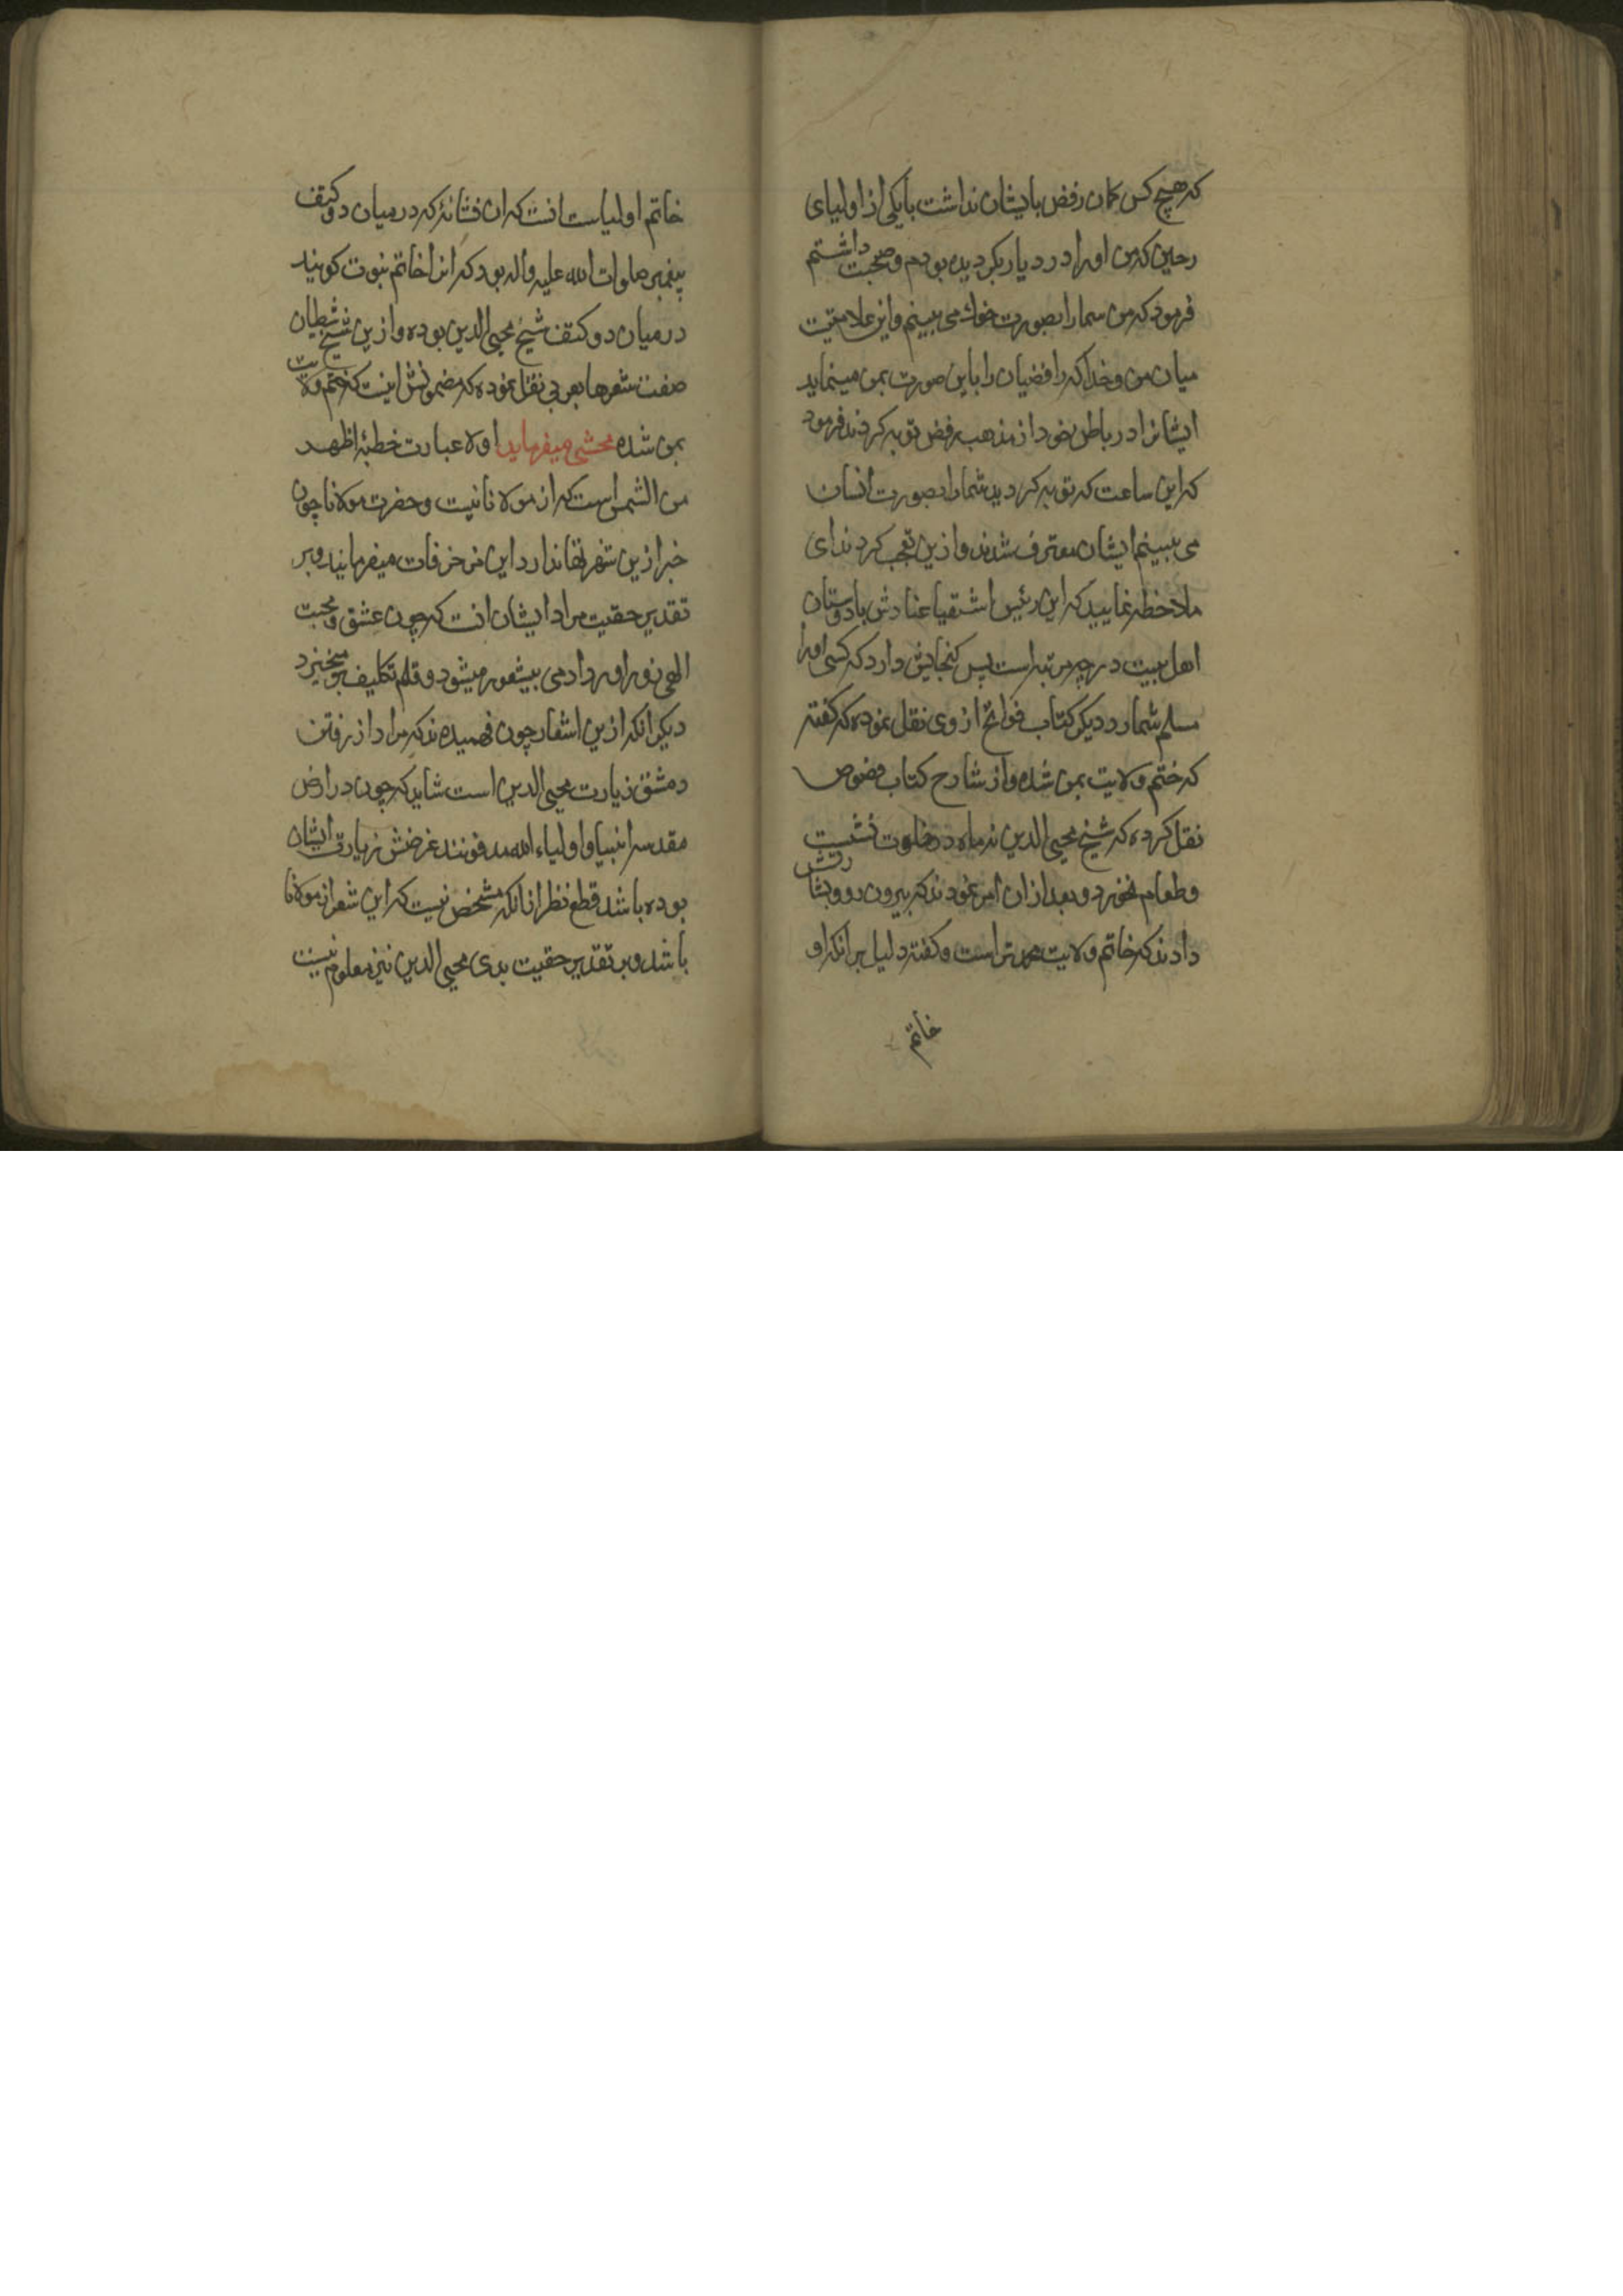 که هیچ کس کمان رفض بایشان نداشت بایکی از اولیای
رحبین که من اورا در دیار بکر دیده بودم و صحبت داشتم
فرمود که من سمارا بصورت خوک می بینم و این علامتیت
میان من و خدا که رافضیان را باین صورت بمن مینماید
ایشانرا در باطن خود از مذهب رفض توبه کردند فرمود
که این ساعت که توبه کردید شمارا بصورت انسان
می بینم ایشان معترف شدند و ازین تعجب کردند ای
ملاحظه نمایید که این رئیس اشقیا عنادش بادوستان
اهل بیت در چه مرتبه است پس کنجایش دارد که کسی اورا
مسلم شمارد دیکر کتاب فواتح از وی نقل نموده که کفته
که ختم ولایت بمن شده و از شارح کتاب فصوص
نقل کرده که شیخ محیی الدین نه ماه در خلوت نشست
و طعام نخورد و بعد از ان امر نمودند که بیرون رو و بشارتش
دادند که خاتم ولایت محمدی است و کفته دلیل بر انکه او
خاتم
خاتم اولیاست انست که ان نشانهٔ که در میان دو کتف
پیغمبر صلوات الله علیه و اله بود که انرا خاتم نبوت کویند
در میان دو کتف شیخ محیی الدین بوده و ازین شیخ شیطان
صفت شعرها بعربی نقل نموده که مضمونش اینست که ختم ولایت
بمن شده محشی میفرماید اولا عبارت خطبهٔ اظهر
من الشمس است که از مولانا نیست و حضرت مولانا چون
خبر ازین شعرها ندارد این مزخرفات میفرمایند و بر
تقدیر حقیت مراد ایشان انست که چون عشق و محبت
الهی زور اورد ادمی بیشعور میشود و قلم تکلیف برمیخیزد
دیکر انکه ازین اشعار چون فهمیده اند که مراد از رفتن
دمشق زیارت محیی الدین است شاید که چون در ارض
مقدسه انبیا و اولیاء الله مدفونند غرضش زیارت ایشان
بوده باشد قطع نظر از انکه مشخص نیست که این شعر از مولانا
باشد و بر تقدیر حقیت بدی محیی الدین نیز معلوم نیست